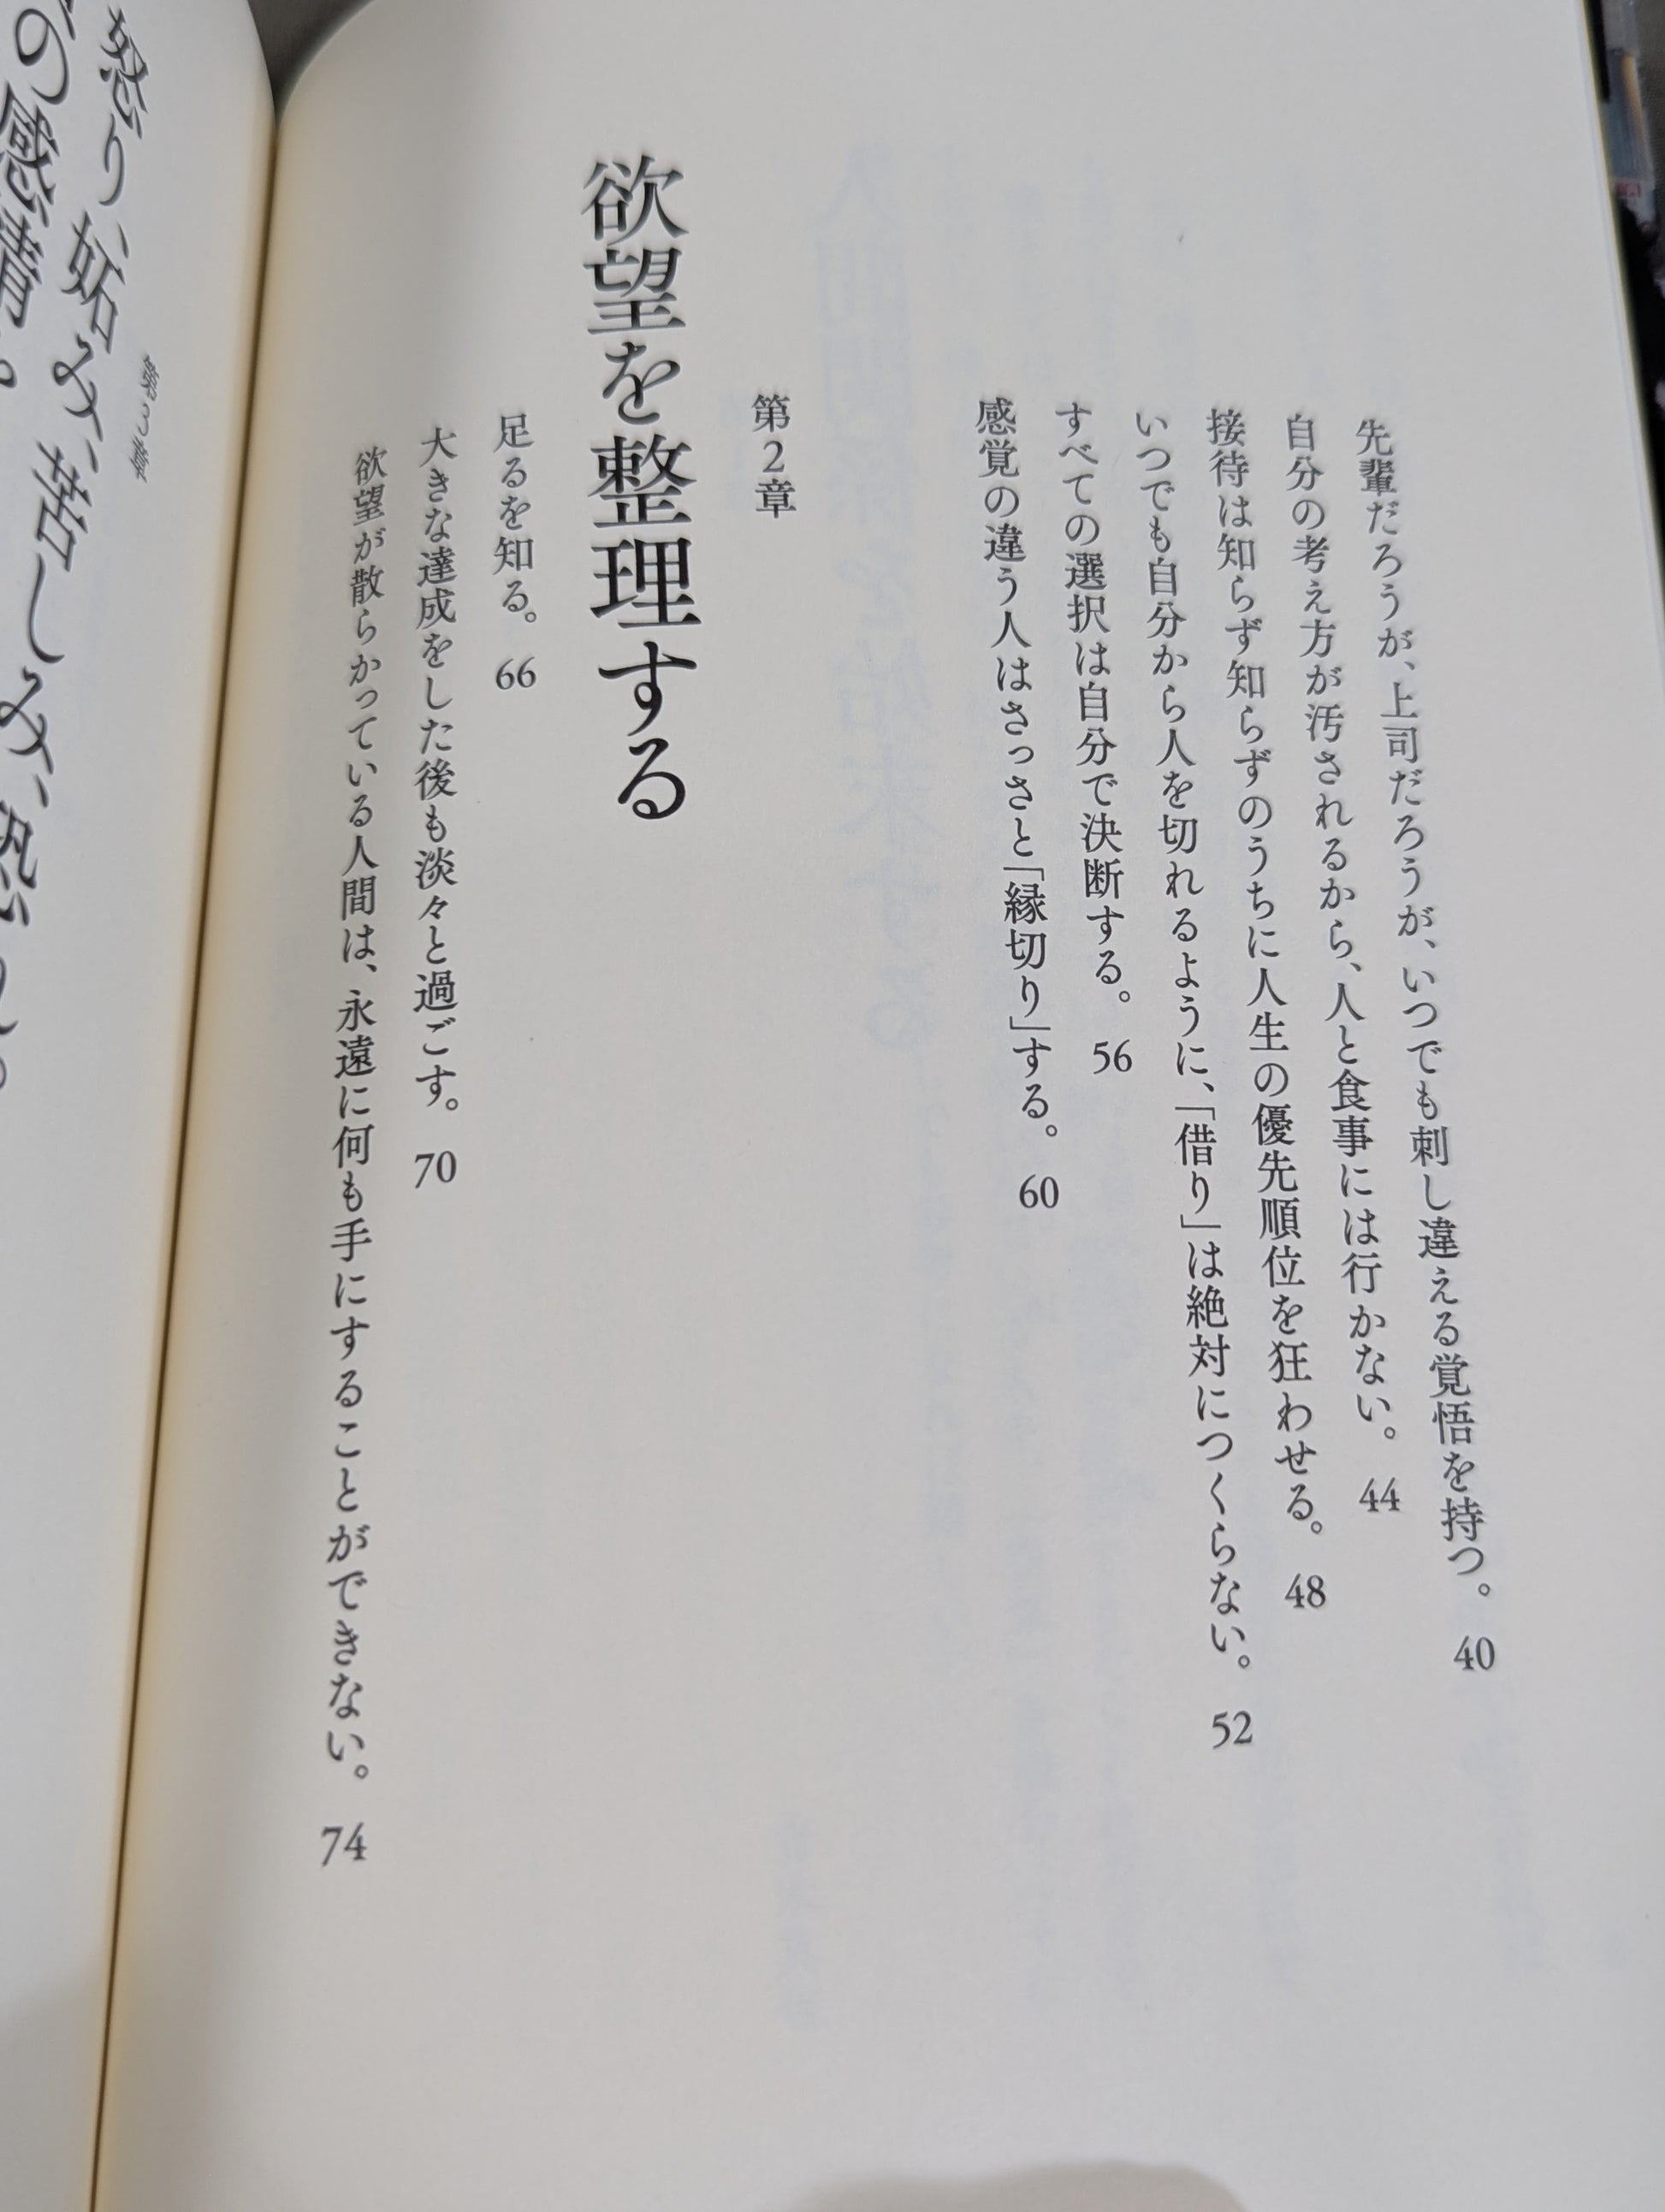 先輩だろうが、上司だろうが、いつでも刺し違える覚悟を持つ。 40
自分の考え方が汚されるから、人と食事には行かない。 44
接待は知らず知らずのうちに人生の優先順位を狂わせる。 48
いつでも自分から人を切れるように、「借り」は絶対につくらない。 52
すべての選択は自分で決断する。 56
感覚の違う人はさっさと「縁切り」する。 60
第2章
欲望を整理する
足るを知る。 66
大きな達成をした後も淡々と過ごす。 70
欲望が散らかっている人間は、永遠に何も手にすることができない。 74
第3章
怒り、妬み、苦しみ、恐れ。
の感情。